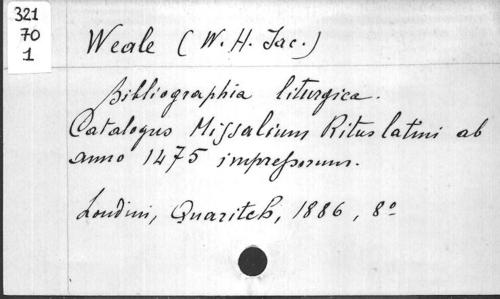 321
70
1
Weale (W. H. Jac.)
Bibliographia liturgica.
Catalogus Missalium Ritus latini ab
anno 1475 impressorum.
Londini, Quaritch, 1886, 8º